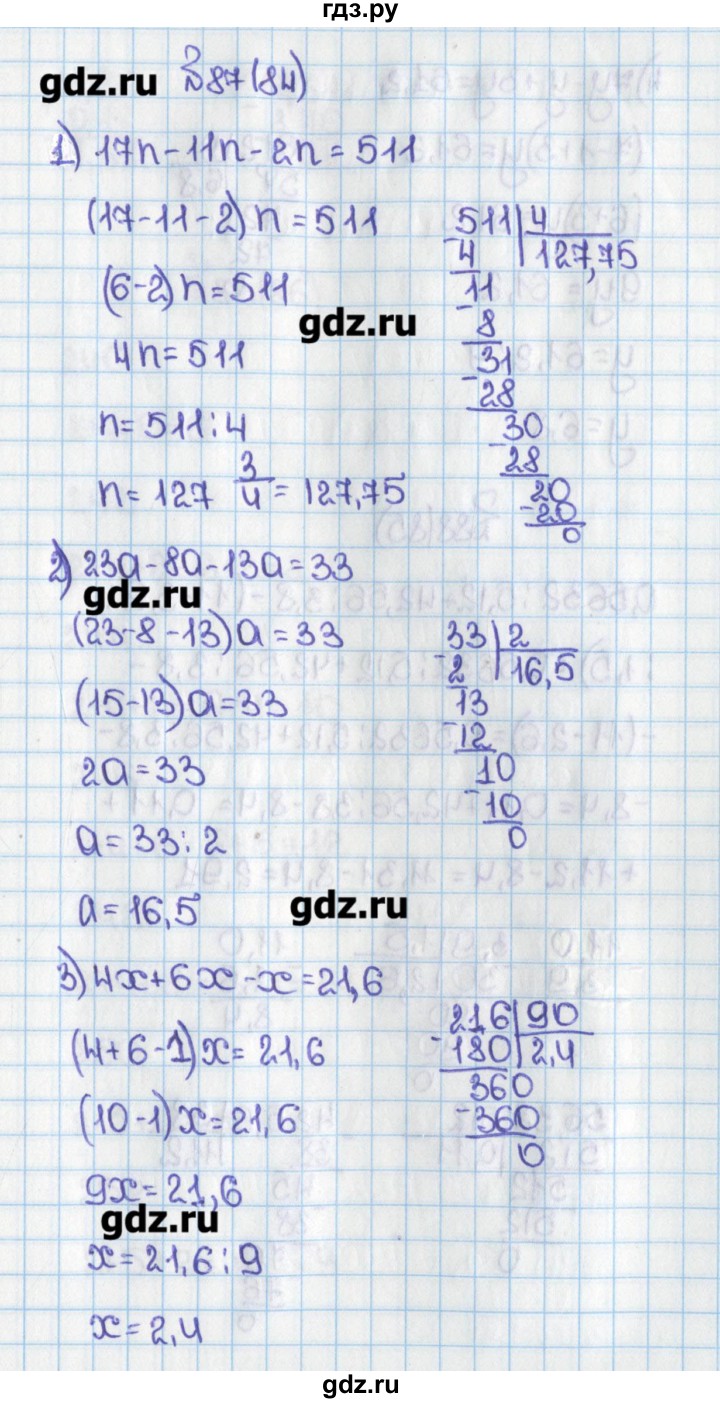 гдз.ру
gdz.ru
№87(84)
1) 17n-11n-2n=511
(17-11-2)n=511
(6-2)n=511
4n=511
n=511:4
n=127 3/4=127,75
511|4
-4 |127,75
11
-8
31
-28
30
-28
20
-20
0
gdz.ru
2) 23a-8a-13a=33
gdz.ru
(23-8-13)a=33
(15-13)a=33
2a=33
a=33:2
a=16,5
33|2
-2|16,5
13
-12
10
-10
0
gdz.ru
3) 4x+6x-x=21,6
(4+6-1)x=21,6
(10-1)x=21,6
9x=21,6
gdz.ru
x=21,6:9
x=2,4
216|90
-180|2,4
360
-360
0
gdz.ru